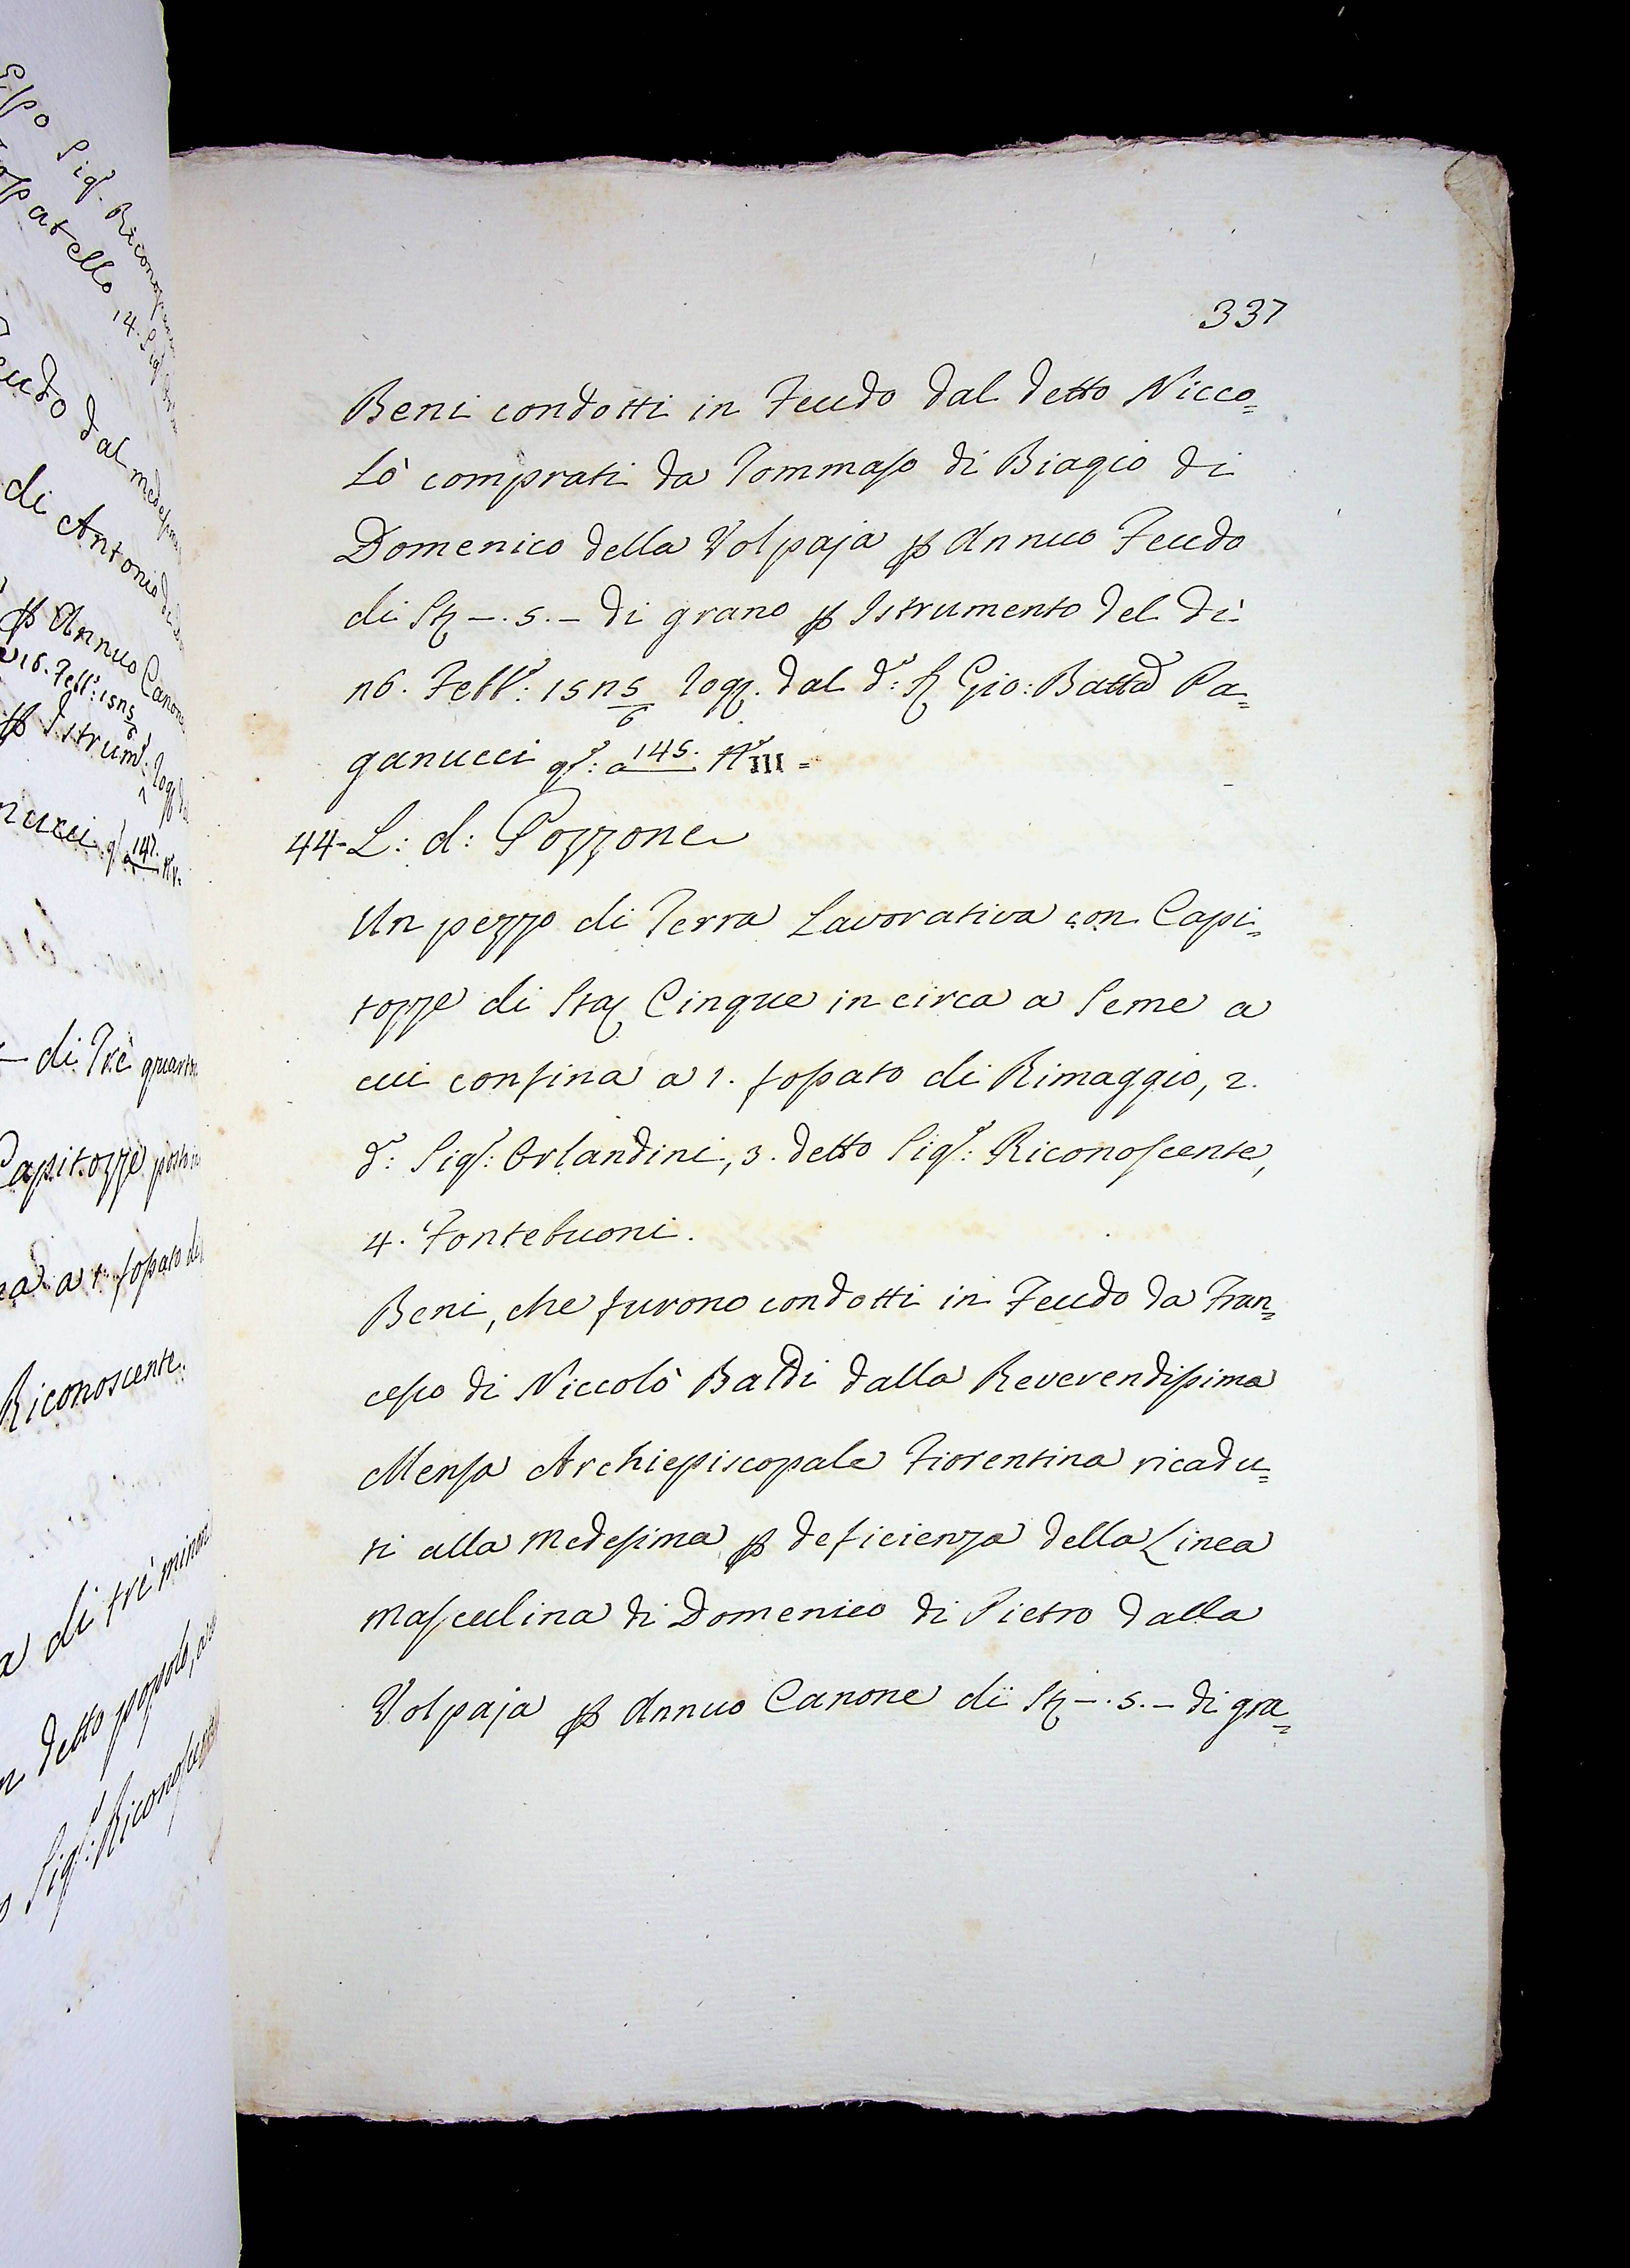 337
Beni condotti in Feudo dal detto Nicco=
lò comprati da Tommaso di Biagio di
Domenico della Volpaja p Annuo Feudo
di St –.5.– di grano p Istrumento del dì
26. Febb: 1525/6 rog. dal d: S Gio: Batta Pa=
ganucci q: a 145. N III =
44- L: d: Pozzone
Un pezzo di Terra Lavorativa con Capi=
tozze di Sta Cinque in circa a Seme a
cui confina a 1. fossato di Rimaggio, 2.
d: Sig: Orlandini, 3. detto Sig: Riconoscente,
4. Fontebuoni.
Beni, che furono condotti in Feudo da Fran=
cesco di Niccolò Baldi dalla Reverendissima
Mensa Archiepiscopale Fiorentina ricadu=
ti alla medesima p deficienza della Linea
Masculina di Domenico di Pietro dalla
Volpaja p Annuo Canone di St –.5.– di gra=
di Antonio
p Annuo Canone
16. Febb: 1525/6
p Istrum:
147.
di Trè quarto
Capitozze posto in
a 1. fossato di
Riconoscente.
di trè
detto popolo,
Sig: